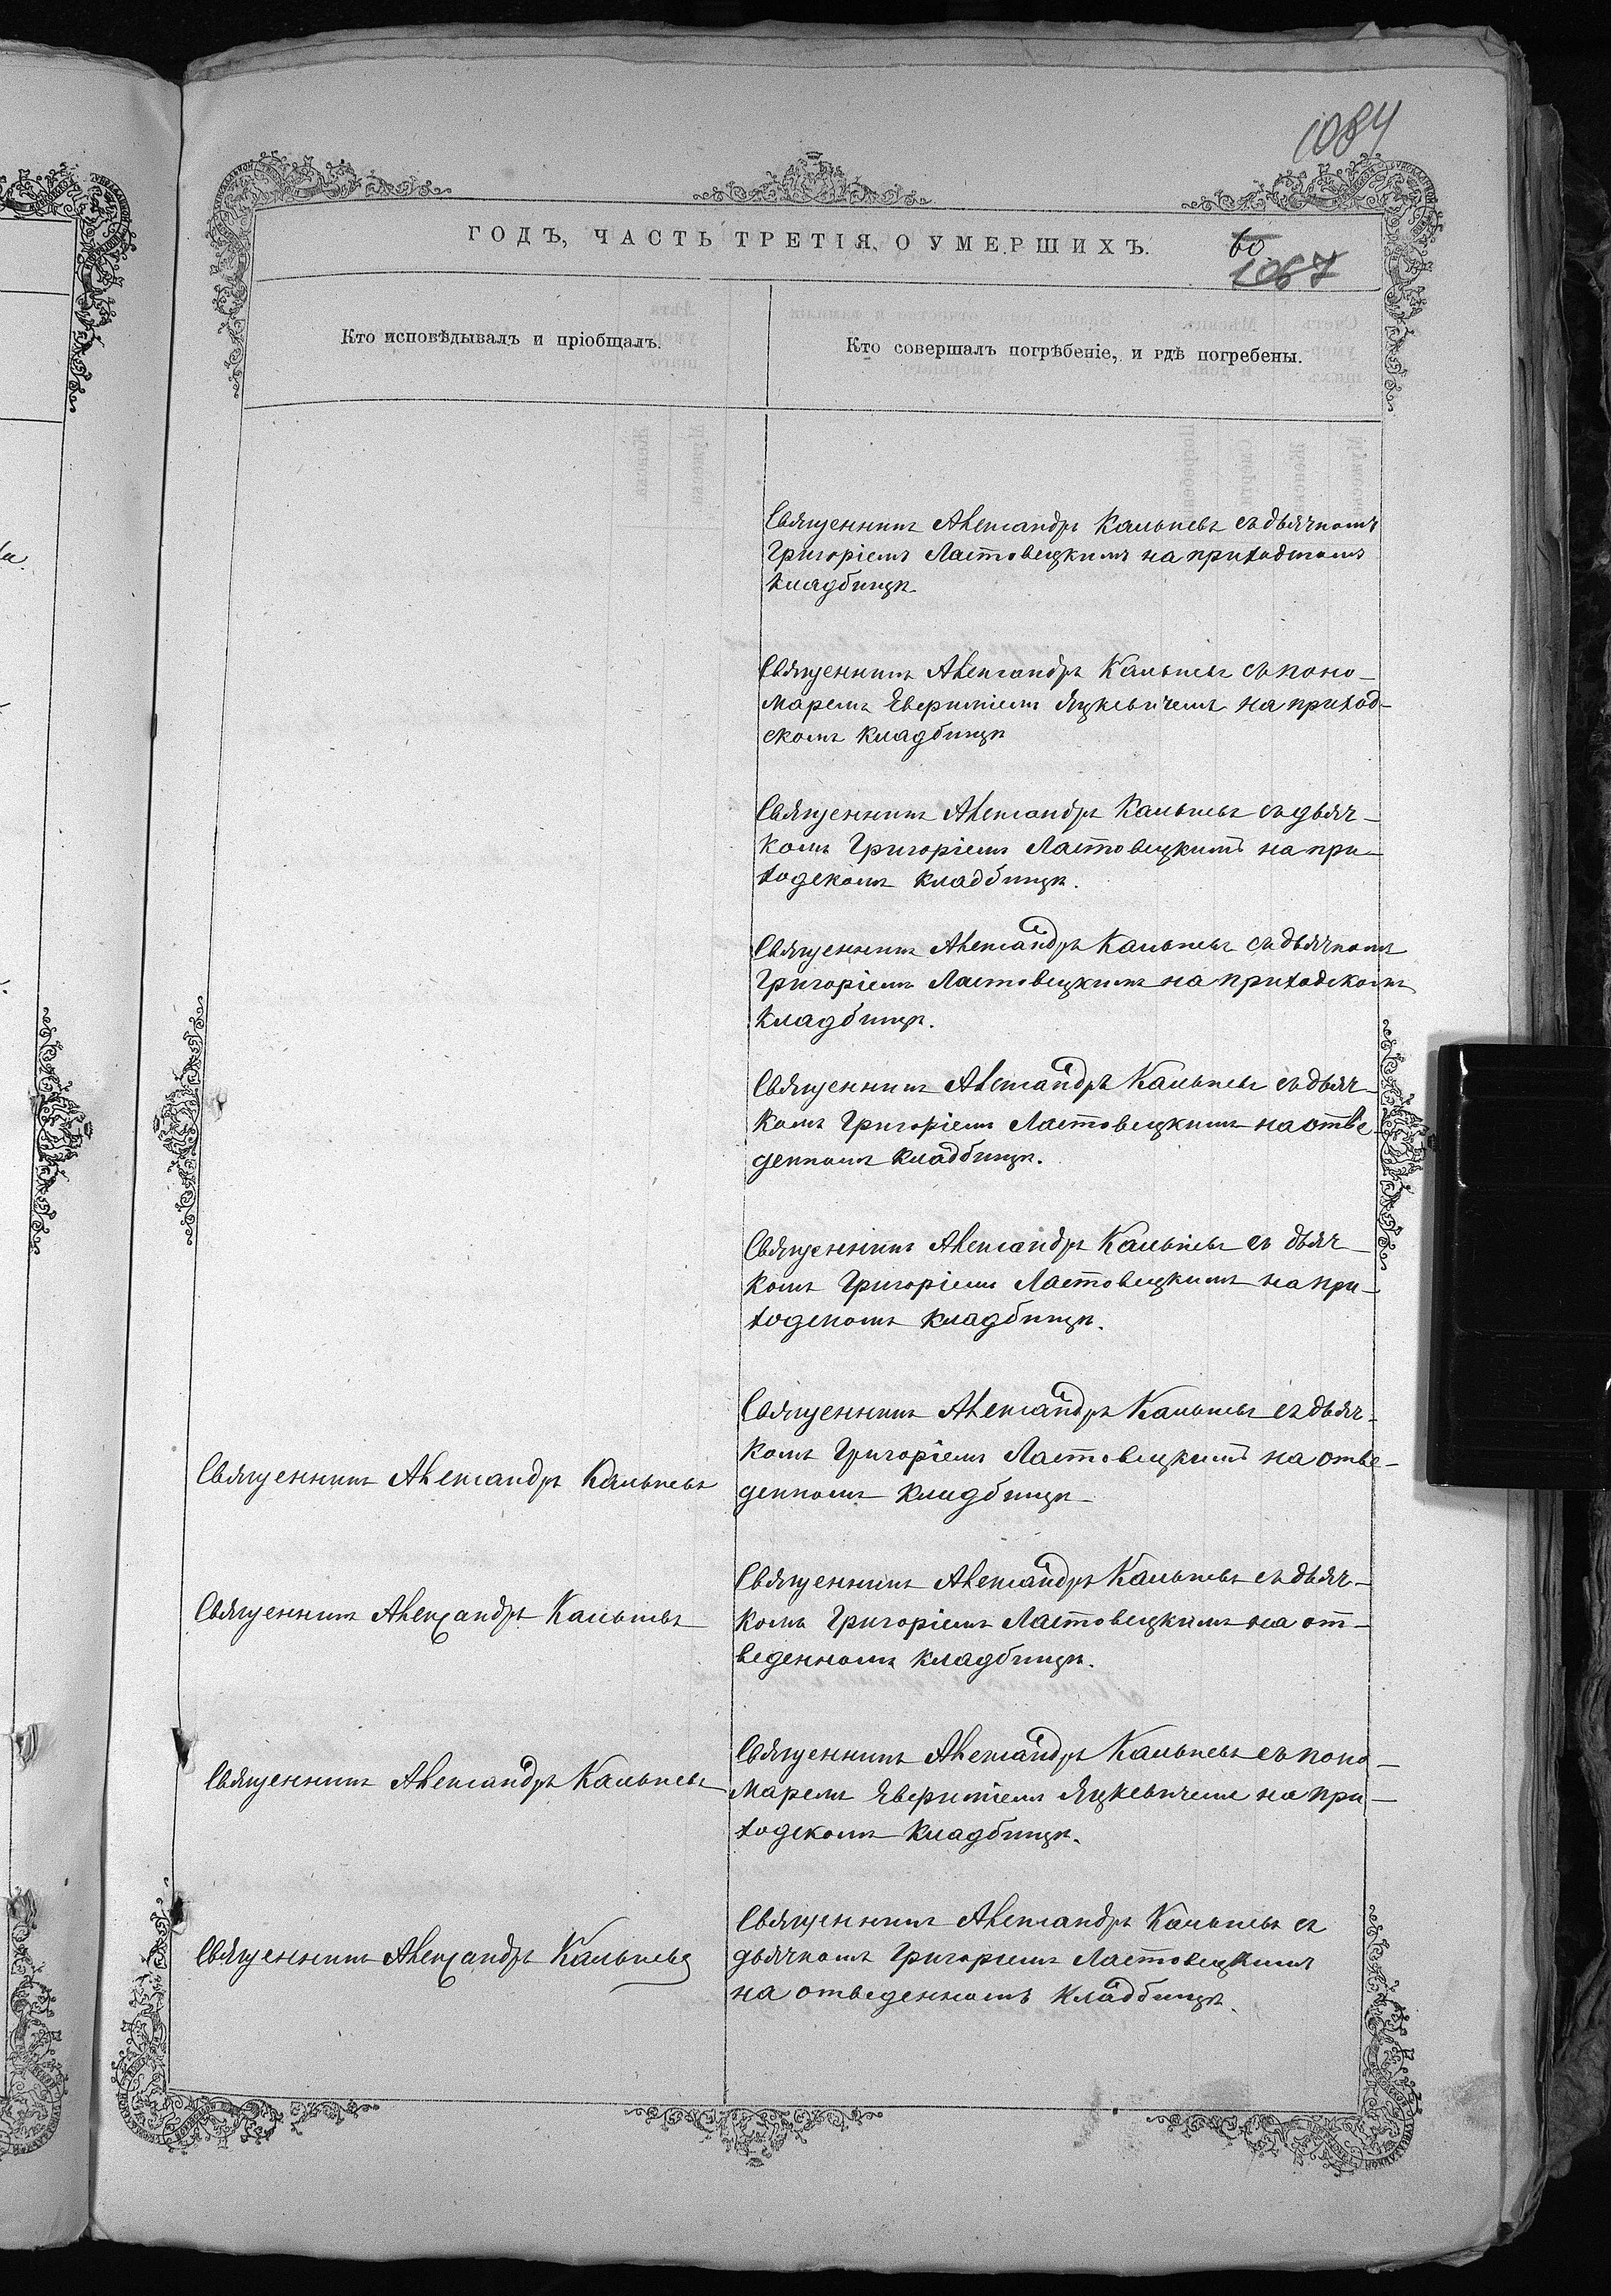 1084
ГОДЪ, ЧАСТЬ ТРЕТІЯ, О УМЕРШИХЪ.
1087
Кто исповѣдывалъ и пріобщалъ.
Кто совершалъ погрѣбеніе, и гдѣ погребены.
Священникъ Александръ Кальневъ съ дьячкомъ
Григоріемъ Ластовецкимъ на приходскомъ
кладбищѣ
Священникъ Александръ Кальневъ съ поно-
маремъ Евфиміемъ Яцкевичемъ на приход-
скомъ кладбищѣ
Священникъ Александръ Кальневъ съ дьяч-
комъ Григоріемъ Ластовецкимъ на при-
ходскомъ кладбищѣ.
Священникъ Александръ Кальневъ съ дьячкомъ
Григоріемъ Ластовецкимъ на приходскомъ
кладбищѣ.
Священникъ Александръ Кальневъ съ дьяч-
комъ Григоріемъ Ластовецкимъ на отве-
денномъ кладбищѣ.
Священникъ Александръ Кальневъ съ дьяч-
комъ Григоріемъ Ластовецкимъ на при-
ходскомъ кладбищѣ.
Священникъ Александръ Кальневъ
Священникъ Александръ Кальневъ съ дьяч-
комъ Григоріемъ Ластовецкимъ на отве-
денномъ кладбищѣ
Священникъ Александръ Кальневъ
Священникъ Александръ Кальневъ съ дьяч-
комъ Григоріемъ Ластовецкимъ на от-
веденномъ кладбищѣ.
Священникъ Александръ Кальневъ
Священникъ Александръ Кальневъ съ поно-
маремъ Евфиміемъ Яцкевичемъ на при-
ходскомъ кладбищѣ.
Священникъ Александръ Кальневъ
Священникъ Александръ Кальневъ съ
дьячкомъ Григоріемъ Ластовецкимъ
на отведенномъ кладбищѣ.